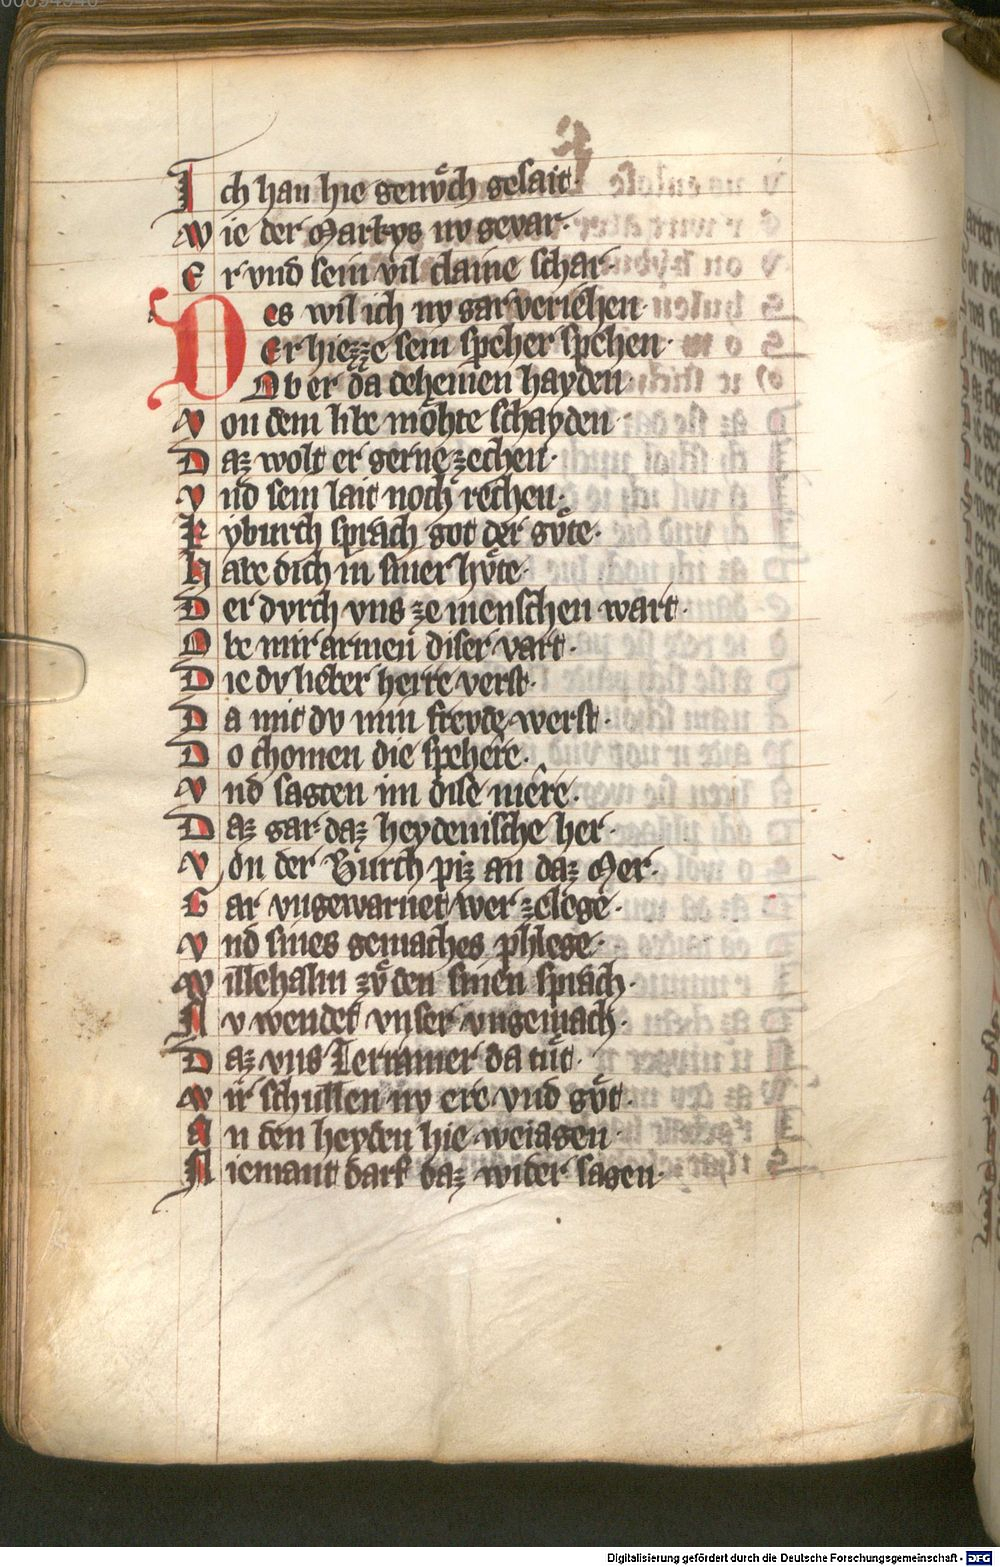 Ich han hie genvͦch gesait·
wie der Markys nv gevar·
Er vnd sein vil claine schar·
Des wil ich nv gar veriehen·
Er hiezze sein speher spehen·
Ob er da deheinen hayden·
von dem libe mohte schayden·
Daz wolt er gerne zechen·
vnd sein lait noch rechen·
kyburch sprach got der gvͦte·
hate dich in siner hvͦte·
Der dvrch vns ze menschen wart·
Obe mir armen diser vart·
Die dv lieber herre verst·
Da mit dv min frevde werst·
Do chomen die spehere·
vnd sagten im dise mere·
Daz gar daz heydenische her·
von der Burch piz an daz Mer·
Gar vngewarnet wer zelege·
vnd sines gemaches phlege·
willehalm zvͦ den sinen sprach·
Nv wendet vnser vngemach·
Daz vns Terramer da tuͦt·
wir schullen nv ere vnd gvͦt·
An den heyden hie weiagen·
Niemant darf daz wider sagen·
Digitalisierung gefördert durch die Deutsche Forschungsgemeinschaft - DFG